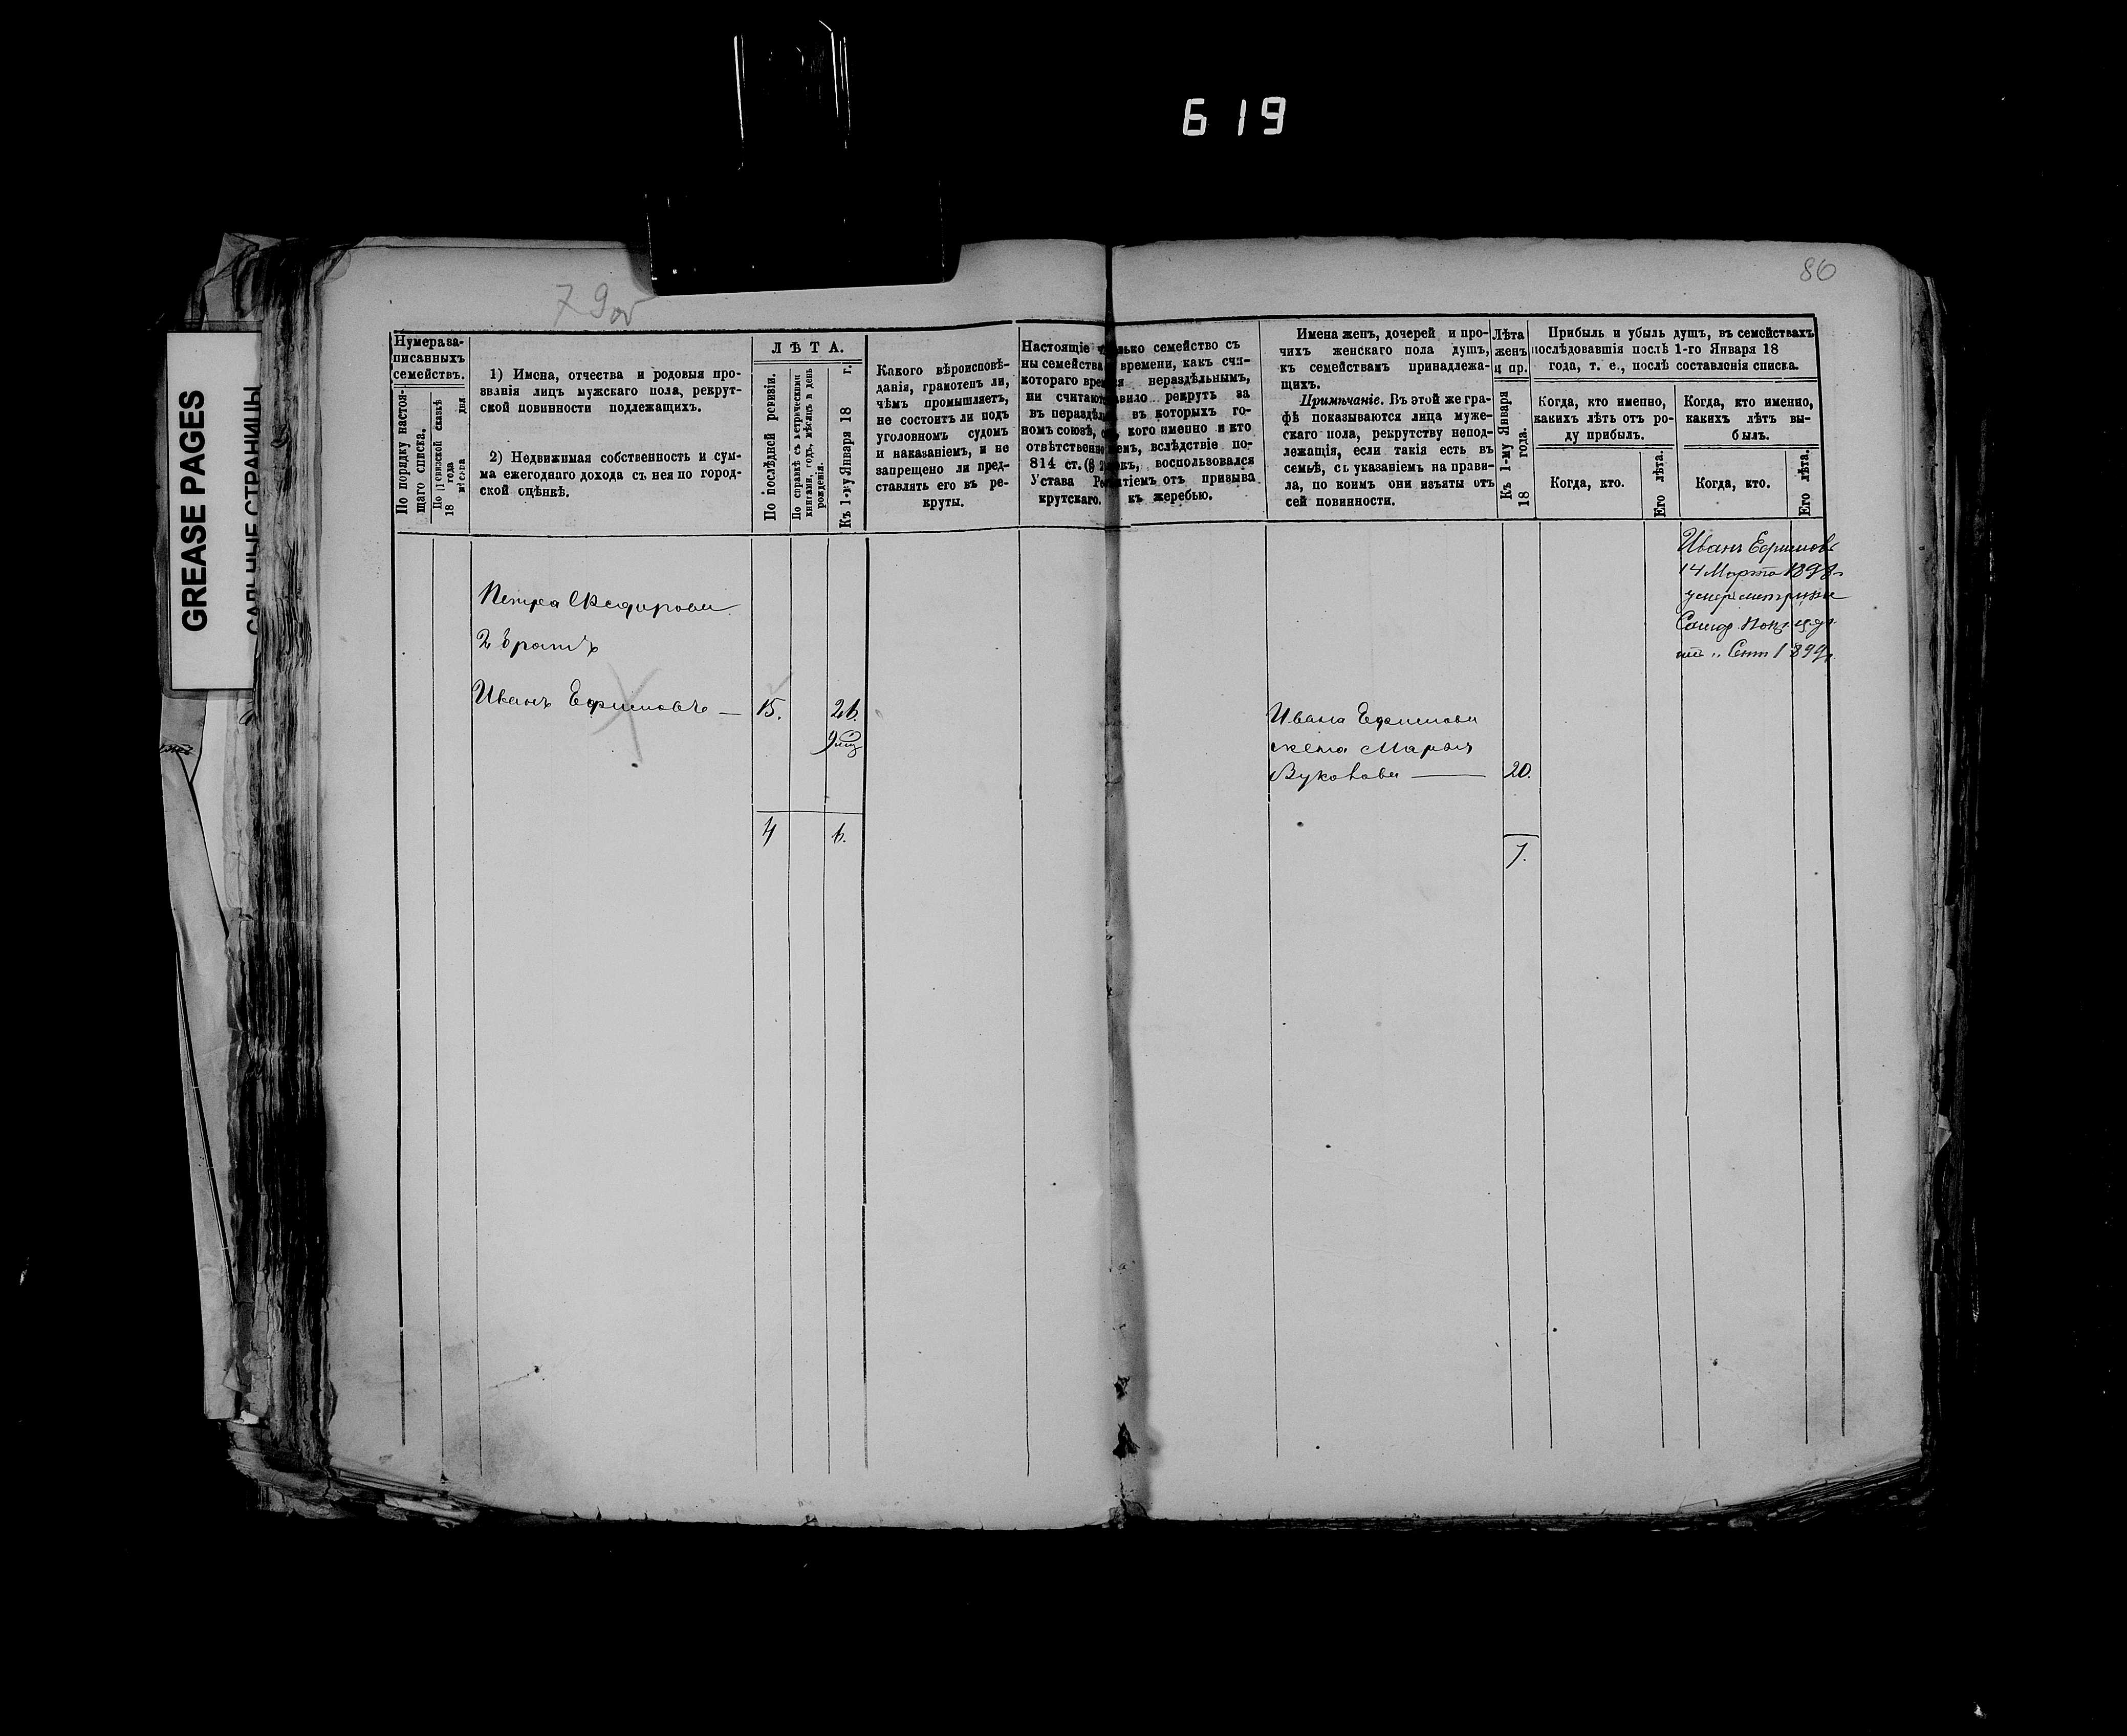 619
GREASE PAGES
САЛЬНЫЕ СТРАНИЦЫ
79об
80
Нумера за-
писанныхъ
семействъ.
По порядку настоя-
щаго списка.
По ревизской сказкѣ
18 года
мѣсяца дня
1) Имена, отчества и родовыя про-
званія лицъ мужскаго пола, рекрут-
ской повинности подлежащихъ.
2) Недвижимая собственность и сум-
ма ежегоднаго дохода съ нея по город-
ской оцѣнкѣ.
ЛѢТА.
По послѣдней ревизіи.
По справкѣ съ метрическими
книгами, годъ, мѣсяцъ и день
рожденія.
Къ 1-му Января 18 г.
Какого вѣроисповѣ-
данія, грамотенъ ли,
чѣмъ промышляетъ,
не состоитъ ли подъ
уголовномъ судомъ
и наказаніемъ, и не
запрещено ли пред-
ставлять его въ ре-
круты.
Настоящіе
ны семейства
котораго вре
ни считают
въ нераздѣль
номъ союзѣ,
отвѣтственно
814 ст.
Устава Ре-
крутскаго.
лько семейство съ
времени, какъ счи-
ся нераздѣльнымъ,
авило рекрутъ за
въ которыхъ го-
кого именно и кто
емъ, вслѣдствіе по-
къ, воспользовался
тіемъ отъ призыва
къ жеребью.
Имена женъ, дочерей и про-
чихъ женскаго пола душъ,
къ семействамъ принадлежа-
щихъ.
Примѣчаніе. Въ этой же гра-
фѣ показываются лица муже-
скаго пола, рекрутству непод-
лежащія, если такія есть въ
семьѣ, съ указаніемъ на прави-
ла, по коимъ они изъяты отъ
сей повинности.
Лѣта
женъ
и пр.
Къ 1-му Января
18 года.
Прибыль и убыль душъ, въ семействахъ
послѣдовавшія послѣ 1-го Января 18
года, т. е., послѣ составленія списка.
Когда, кто именно,
какихъ лѣтъ отъ ро-
ду прибылъ.
Когда, кто именно,
какихъ лѣтъ вы-
былъ.
Когда, кто.
Его лѣта.
Когда, кто.
Его лѣта.
Петра Ѳедорова
2 братъ
Иванъ Ефимовъ — 15. 26.
4 6.
Ивана Ефимова
жена Марья
20.
7.
Иванъ Ефимовъ
14 Марта 1898
умеръ
1899